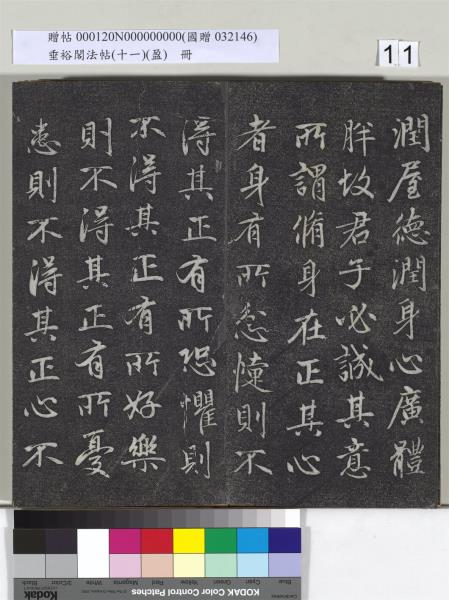 贈帖 000120N000000000(國贈 032146)
垂裕閣法帖(十一)(盈) 冊
11
潤屋德潤身心廣體
胖故君子必誠其意
所謂脩身在正其心
者身有所忿懥則不
得其正有所恐懼則
不得其正有所好樂
則不得其正有所憂
患則不得其正心不
Blue Cyan Green Yellow Red Magenta White 3/Color Black
KODAK Color Control Patches